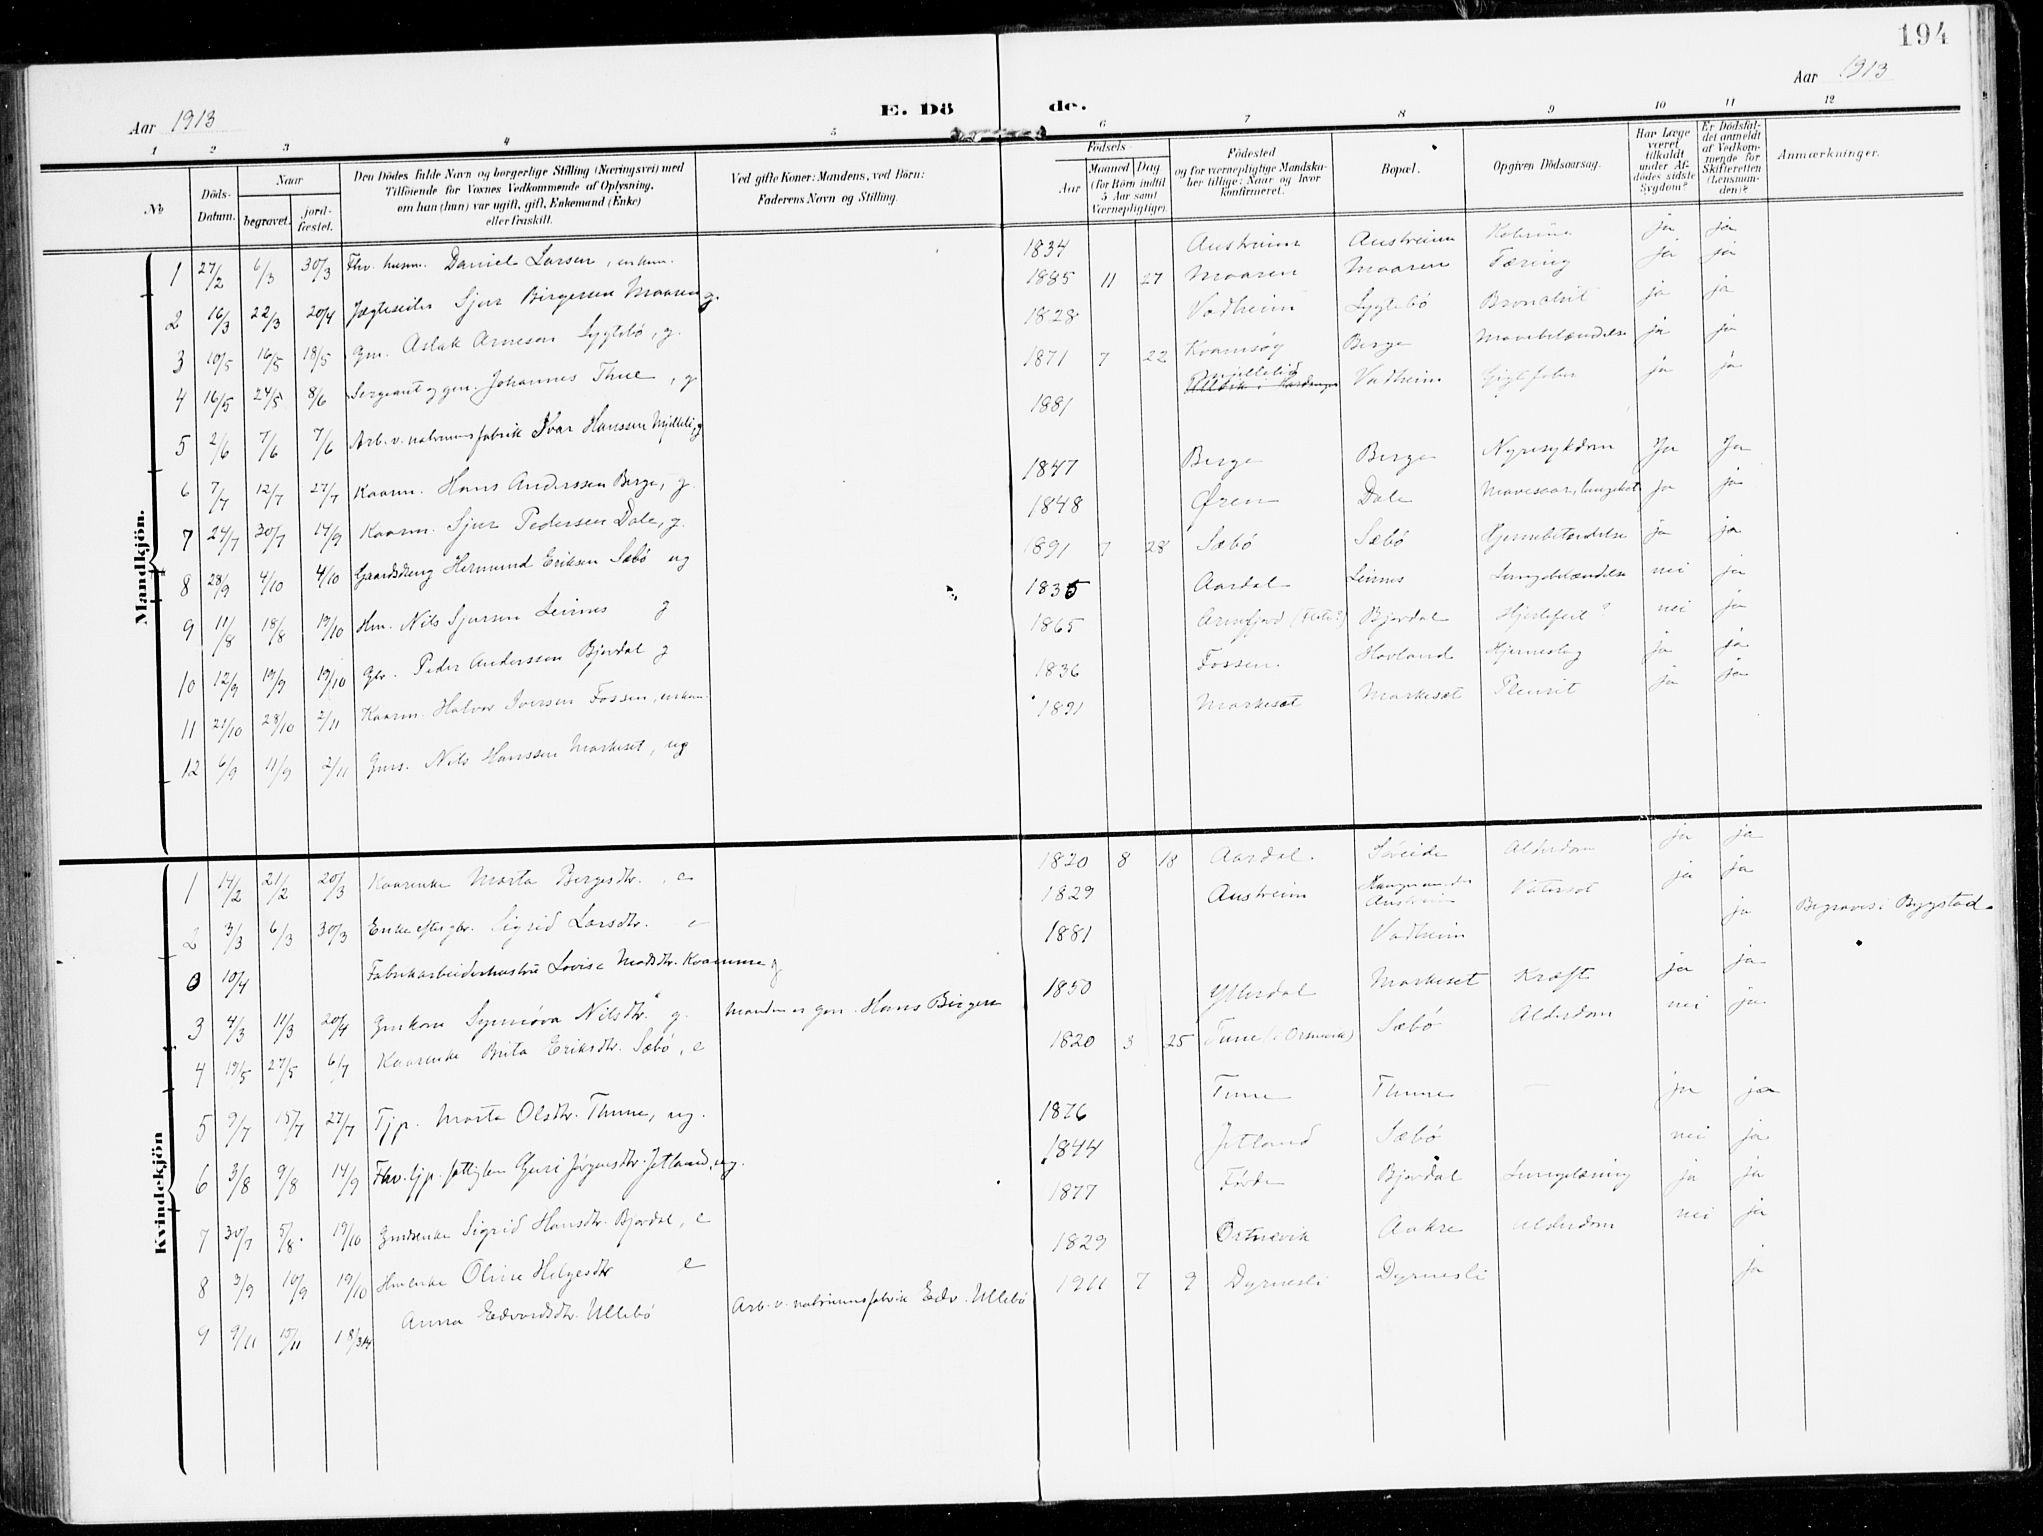 194
Aar 1913
E. Dö de.
Aar 1913
1 2 3 4 5 6 7 8 9 10 11 12
No
Döds-Datum.
Naar
begravet.
jord-fæstet.
Den Dödes fulde Navn og borgerlige Stilling (Næringsvei) med Tilföiende for Voxnes Vedkommende af Oplysning, om han (hun) var ugift, gift, Enkemand (Enke) eller fraskilt.
Ved gifte Koner: Mandens, ved Börn: Faderens Navn og Stilling.
Födsels
Aar
Maaned Dag
(for Börn indtil 5 Aar samt Værnepligtige)
Födested og for værnepligtige Mandskaber tillige: Naar og hvor konfirmeret.
Bopæl.
Opgiven Dödsaarsag.
Har Læge været tilkaldt under Afdödes sidste Sygdom?
Er Dödsfaldet anmeldt af Vedkommende for Skifteretten (Lensmanden)?
Anmærkninger.
Mandkjön.
1 27/2 6/3 30/3 Fhv. husm. Daniel Larsen, enkem. 1834 Austreim Austreim ja ja
2 16/3 22/3 20/4 Jægteseiler Sjur Birgersen Maaren g. 1885 11 27 Maaren Maaren Tæring ja ja
3 10/5 16/5 18/5 Gm. Aslak Arnesen Lygtebö, g. 1828 Vadheim Lygtebö Bronchit ja ja
4 16/5 24/5 8/6 Sergeant og gm. Johannes Thue, g. 1871 7 22 Kvamsöy Berge Mavebetændelse ja ja
5 2/6 7/6 7/6 Arb. v. natriumsfabrik Ivar Hanssen Mjelleli, g 1881 Mjellelid Ullvik i Hardanger Vadheim Gigtfeber ja ja
6 7/7 12/7 27/7 Kaarm. Hans Anderssen Berge, g. 1847 Berge Berge Nyresykdom Ja Ja
7 24/7 30/7 14/9 Kaarm. Sjur Pedersen Dale, g. 1848 Øren Dale Mavesaar, ja ja
8 28/9 4/10 4/10 Gaardsdreng Hermund Eriksen Sæbö ug 1891 7 28 Sæbö Sæbö Hjernebetændelse ja ja
9 11/8 18/8 19/10 Hm. Nils Sjursen Leirnes g 1835 Aardal Leirnes Lungebetændelse nei ja
10 12/9 19/9 19/10 Gbr. Peder Anderssen Bjordal g 1865 Arnefjord Bjordal Hjertefeil? nei ja
11 21/10 28/10 2/11 Kaarm. Halvor Iversen Fossen, enkem. 1836 Fossen Hovland Hjerneslag ja ja
12 6/9 11/9 2/11 Gms. Nils Hanssen Markeset, ug 1891 Markeset Markeset Pleurit ja ja
Kvindekjön
1 14/2 21/2 20/3 Kaarenke Marta Bergesdtr., e 1820 8 18 Aardal Söreide Alderdom ja ja
2 3/3 6/3 30/3 Enke efter gbr. Sigrid Larsdtr. e 1829 Austreim Austreim Vatersot ja ja
0 10/4 Fabrikarbeiderhustru Lovise Madsdtr. Kvamme g 1881 Vadheim ja Begraves i Bygstad.
3 4/3 11/3 20/4 Gmkone Synnöva Nilsdtr. g. Manden er gm. Hans Birgers 1850 Ytterdal Markeset Kræft ja ja
4 19/5 27/5 6/7 Kaarenke Brita Eriksdtr. Sæbö, e 1820 3 25 Tune (i Ortnevik) Sæbö Alderdom nei ja
5 9/7 15/7 27/7 Tjp. Marta Olsdtr. Thune, ug. 1876 Tune Thune — ja ja
6 3/8 9/8 14/9 Fhv. tjp. fattiglem Guri Jörgensdtr. Jetland, ug. 1844 Jetland Sæbö nei ja
7 30/7 5/8 19/10 Gmdsenke Sigrid Hansdtr. Bjordal, e 1877 Förde Bjordal Lungetæring ja ja
8 3/9 10/9 19/10 Hmenke Oline Helgesdtr e 1829 Ortnevik Aakre Alderdom nei ja
9 9/11 15/11 18/3 14 Anna Edvardsdtr. Ullebö Arb. v. natriumsfabrik Edv. Ullebö 1911 7 9 Dyrnesli Dyrnesli ja